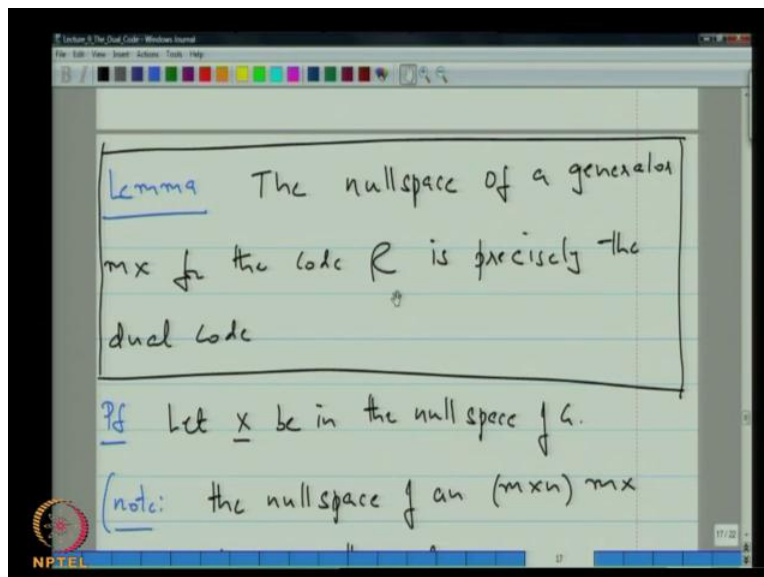 Lecture_9_The_Dual_Code - Windows Journal
File Edit View Insert Actions Tools Help
Lemma The nullspace of a generator
mx for the code C is precisely the
dual code
Pf Let x be in the null space of G.
(note: the nullspace of an (m×n) mx
17/22
17
NPTEL